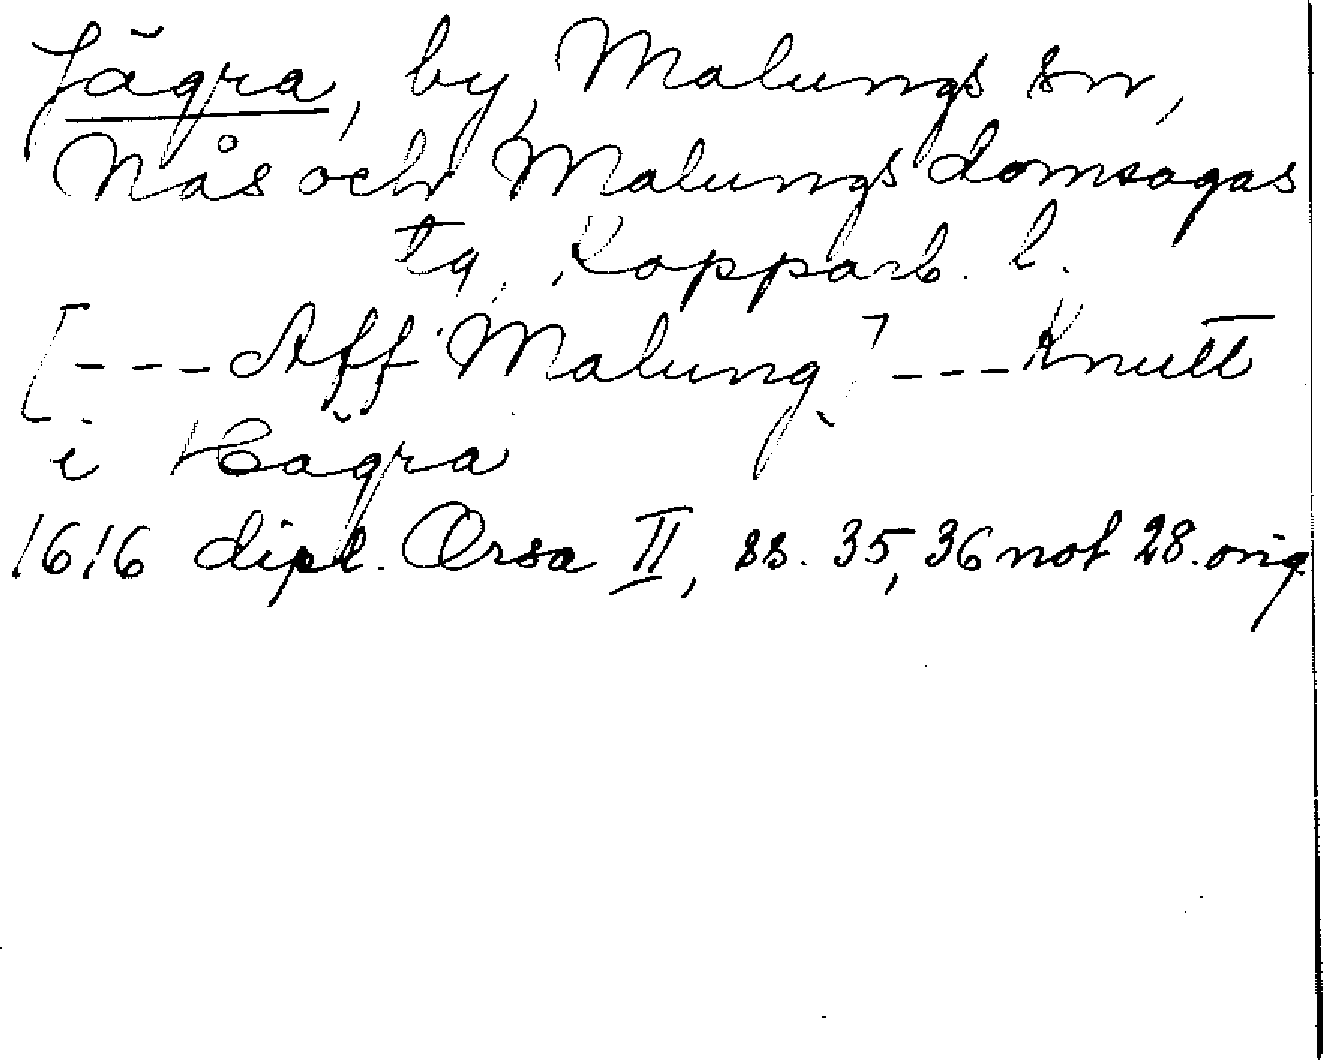 Jägra, by, Malungs sn,
Nås och Malungs domsagas
tg, Kopparb. l.
[---Aff Malung] --- Knutt
i Hägra
1616 dipl. Orsa II, ss. 35, 36 not 28. orig.